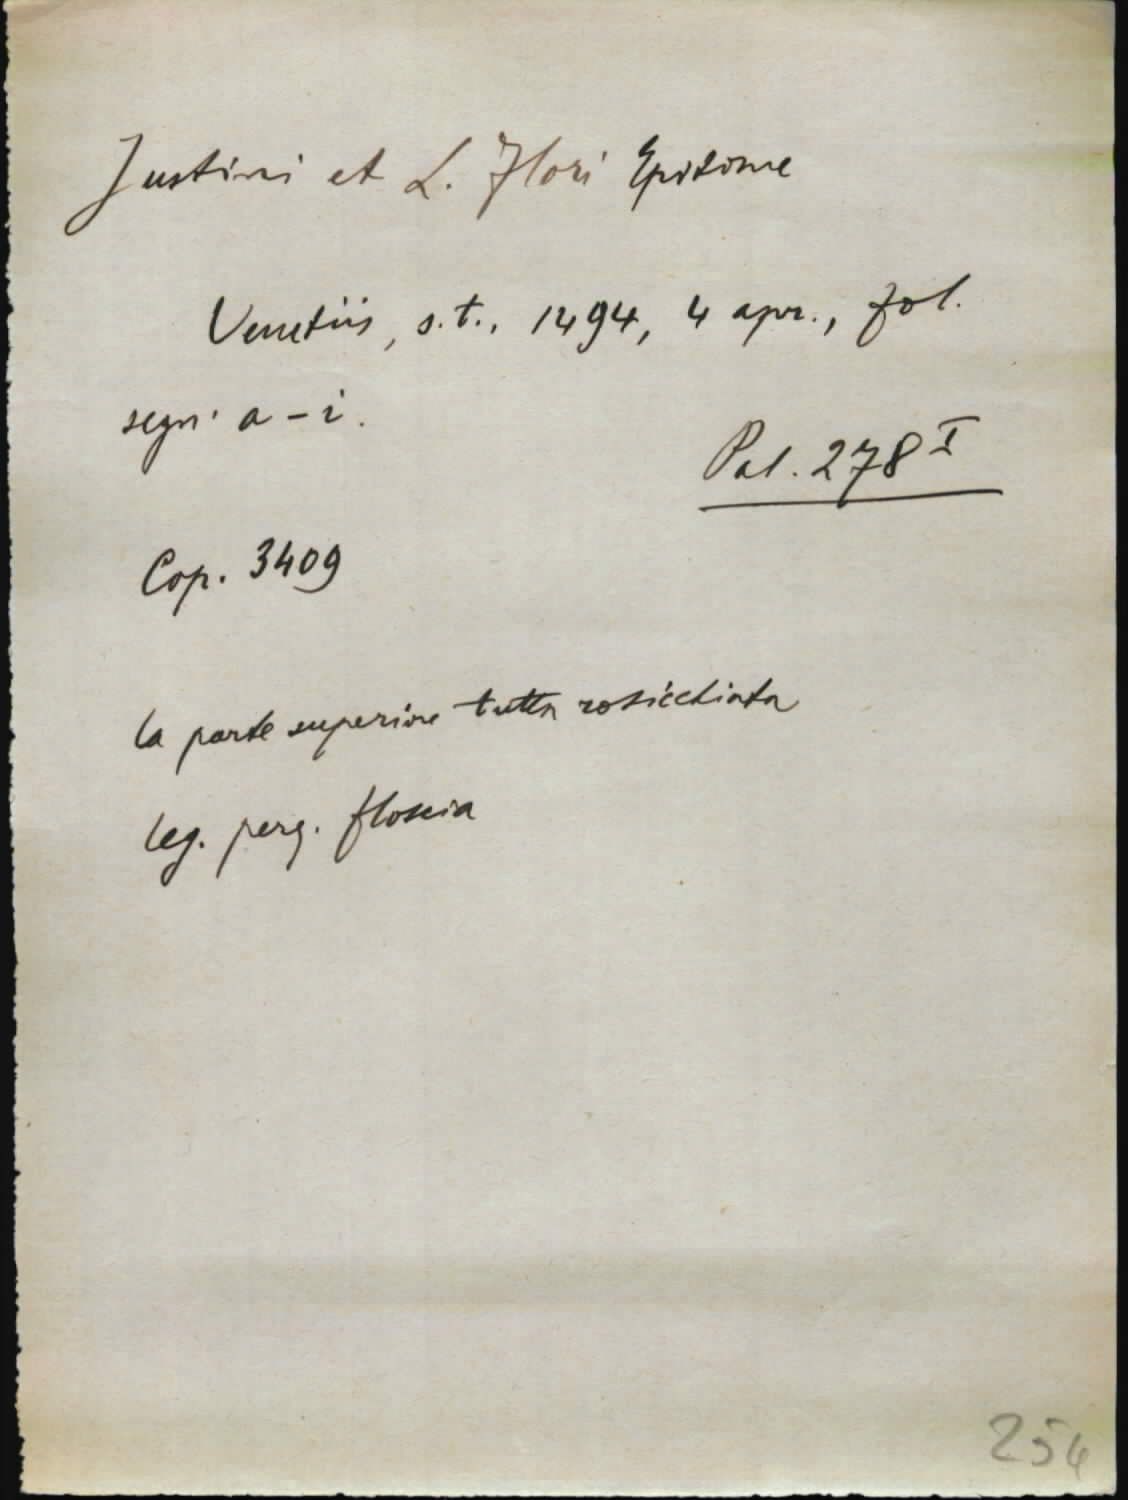 Justini et L. Flori Epitome
Venetiis, s.t., 1494, 4 apr., fol.
segn. a - i.
Pal. 278 I
Cop. 3409
la parte superiore tutta rosicchiata
leg. perg. floscia
254